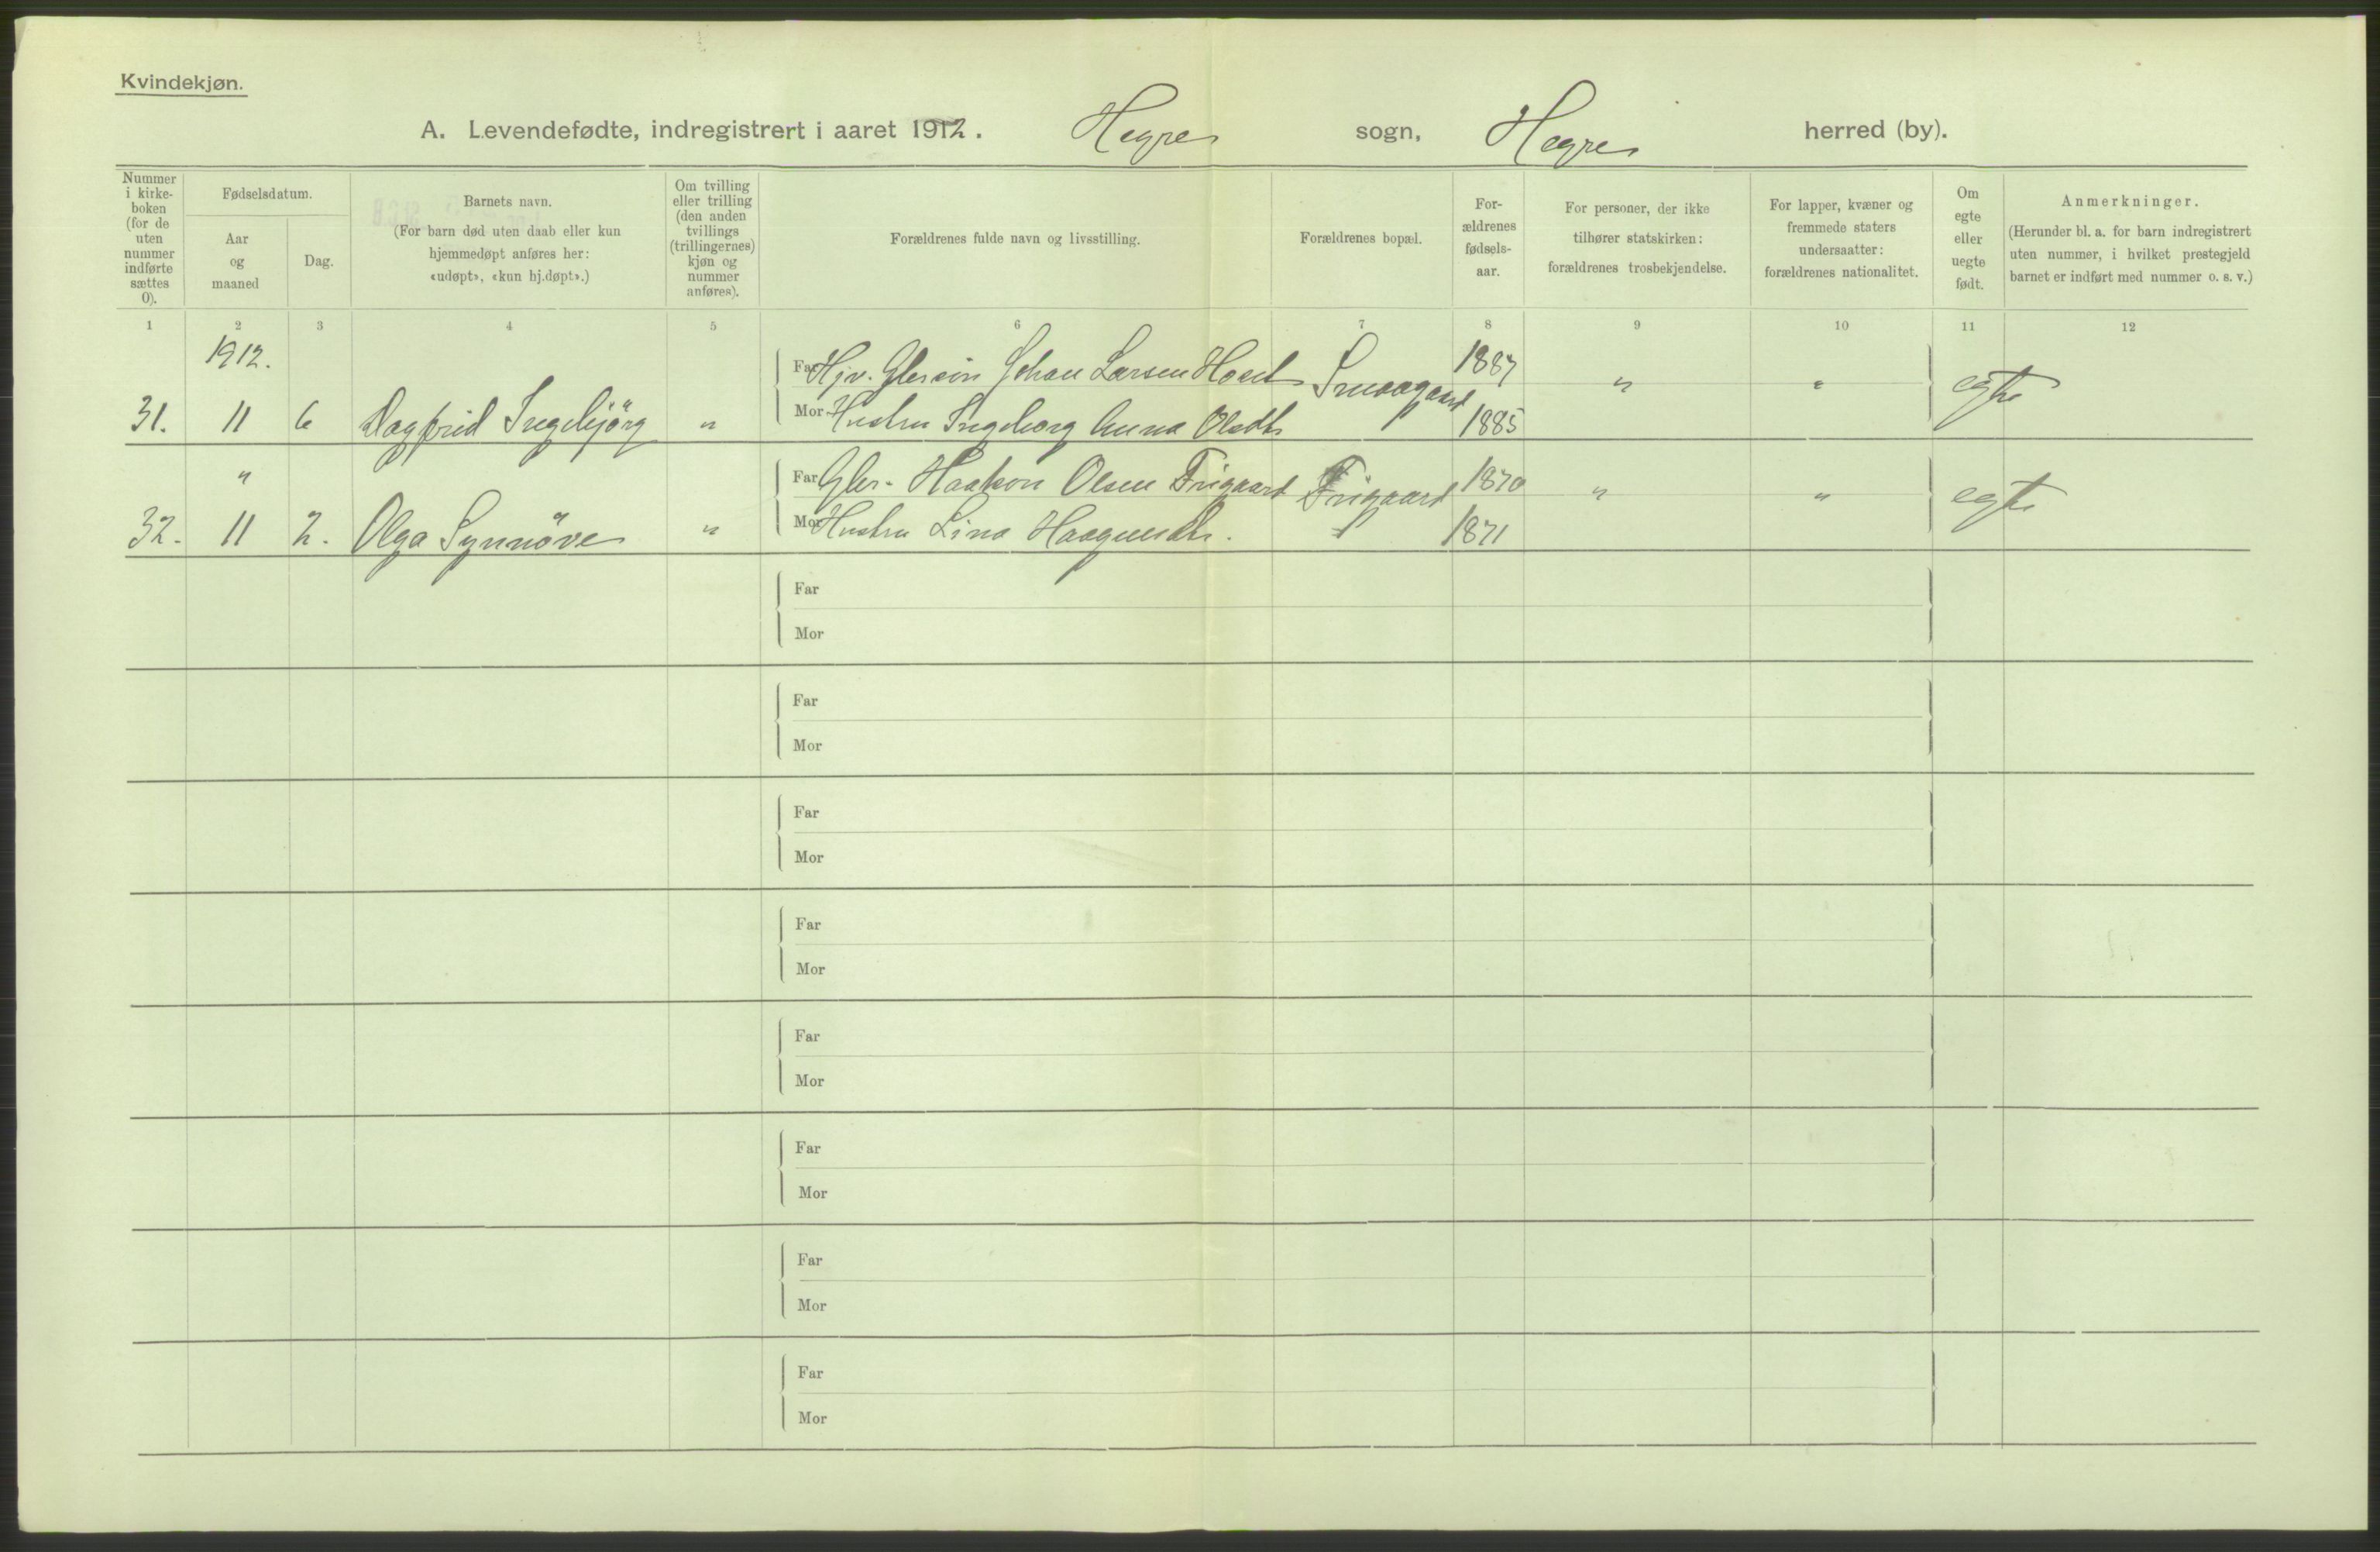 Kvindekjøn.
A. Levendefødte, indregistrert i aaret 1912. Hegre sogn, Hegre herred (by).
Nummer i kirke- boken (for de uten nummer indførte sættes 0).
Fødselsdatum.
Aar og maaned
Dag.
Barnets navn.
(For barn død uten daab eller kun hjemmedøpt anføres her: «udøpt», «kun hj.døpt».)
Om tvilling eller trilling (den anden tvillings (trillingernes) kjøn og nummer anføres).
Forældrenes fulde navn og livsstilling.
Forældrenes bopæl.
For- ældrenes fødsels- aar.
For personer, der ikke tilhører statskirken: forældrenes trosbekjendelse.
For lapper, kvæner og fremmede staters undersaatter: forældrenes nationalitet.
Om egte eller uegte født.
Anmerkninger.
(Herunder bl. a. for barn indregistrert uten nummer, i hvilket prestegjeld barnet er indført med nummer o. s. v.)
1 2 3 4 5 6 7 8 9 10 11 12
1912.
Far Hjv. Johan Larsen Smaagaard 1887 " " egte
31. 11 6 Dagfrid Ingebjörg " Mor Hustru Ingeborg Anna Olsdtr 1885
" Far Haakon Olsen Trigaard Trigaard 1870 " " egte
32. 11 2. Olga Synnöve " Mor Hustru Lina 1871
Far
Mor
Far
Mor
Far
Mor
Far
Mor
Far
Mor
Far
Mor
Far
Mor
Far
Mor